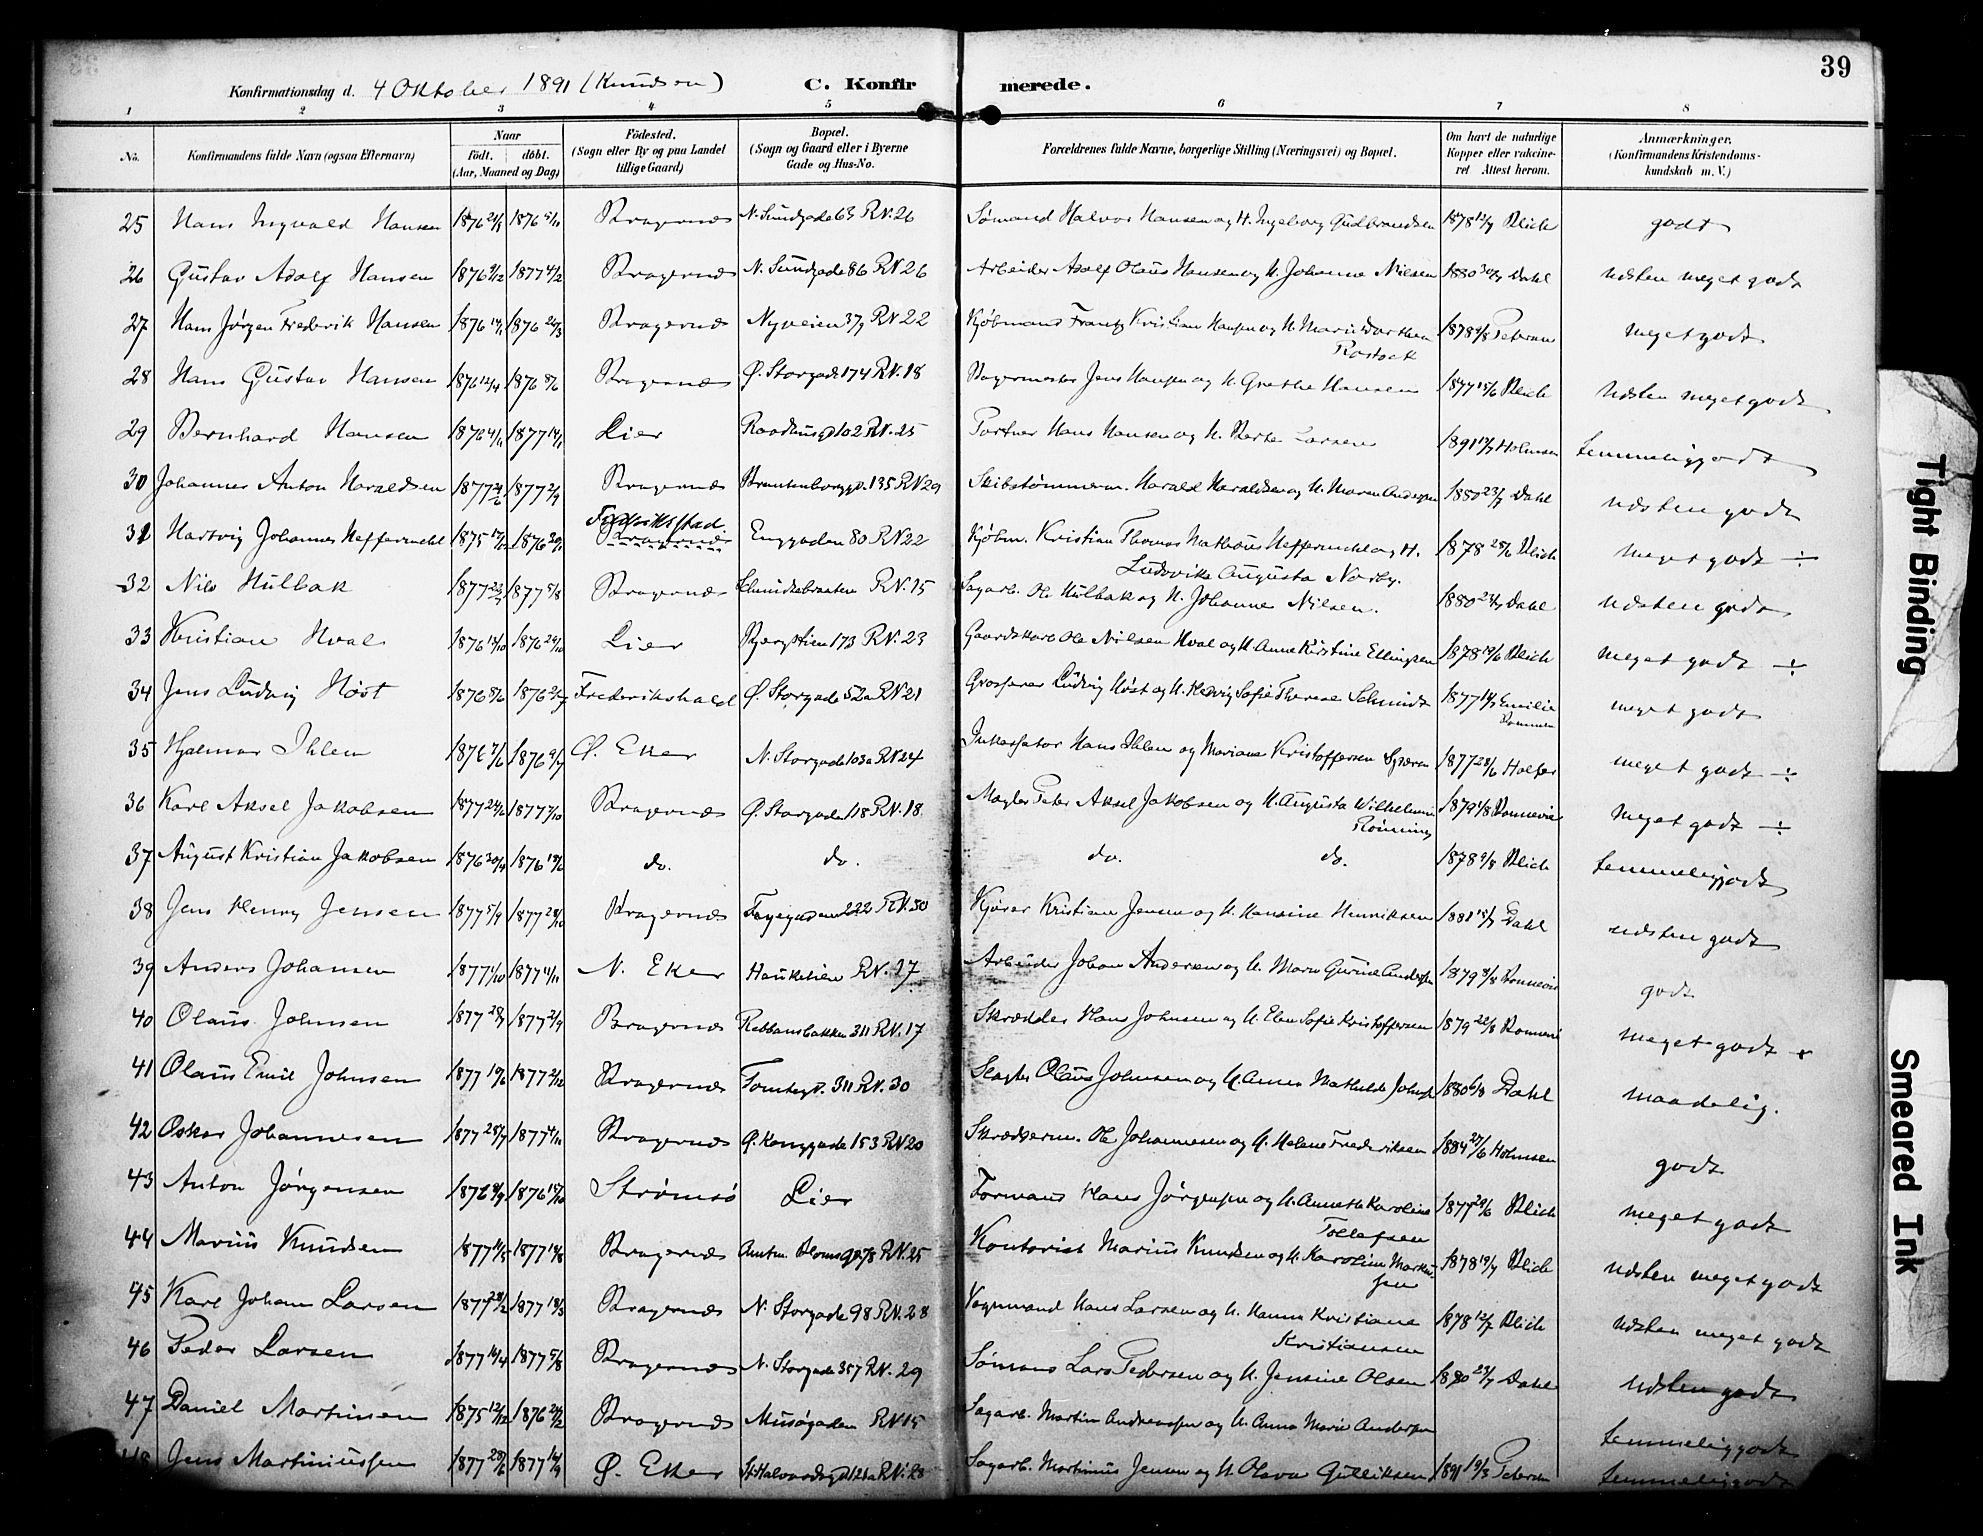 39
Konfirmationsdag d. 4 Oktober 1891 (Knudsen) C. Konfirmerede.
1 2 3 4 5 6 7 8
No. Konfirmandens fulde Navn (ogsaa Efternavn) Naar født. døbt. (Aar, Maaned og Dag) Fødested. (Sogn eller By og paa Landet tillige Gaard) Bopæl. (Sogn og Gaard eller i Byerne Gade og Hus-No. Forældrenes fulde Navne, borgerlige Stilling (Næringsvei) og Bopæl. Om havt de naturlige Kopper eller vakcineret Attest herom. Anmærkninger. (Konfirmandens Kristendomskundskab m. V.)
25 Hans Ingvald Hansen 1876 1876 Bragernæs N. Sundgade 63 RN. 26 Sømand Halvor Hansen og H. Ingeborg Gudbrandsen 1878 12/7 Blich godt
26 Gustav Adolf Hansen 1876 9/12 1877 4/2 Bragernæs N. Sundgade 86 RN 26 Arbeider Adolf Olaus Hansen og H. Johanne Nilsen 1880 Dahl næsten meget godt
27 Hans Jørgen Frederik Hansen 1876 1876 26/3 Bragernæs Nyveien 37 RN 22 Kjøbmand Frantz Kristian Hansen og H. Marie Dorthea Rostock 1878 Petersen meget godt
28 Hans Gustav Hansen 1876 12/4 1876 8/6 Bragernæs Ø. Storgade 174 RN. 18 Bagermester Jens Hansen og H. Grethe Hansen 1877 15/6 Blich næsten meget godt
29 Bernhard Hansen 1876 4/11 1877 14/1 Lier Raadhusgd 102 RN. 25 Portner Hans Hansen og H. Berte Larsen 1891 Holmsen temmelig godt
30 Johannes Anton Haraldsen 1877 1877 2/9 Bragernæs Brantenborggd. 135 RN 29 Skibstømmerm. Harald Haraldsen og H. Maren Andersen 1880 23/7 Dahl næsten godt
31 Hartvig Johannes Heffermehl 1875 1876 Fredrikstad Bragernæs Enggaden 80 RN 22 Kjøbm. Kristian Thomas Mathæus Heffermehl og H. Ludovika Augusta Norby. 1878 Blich meget godt ÷
32 Nils Hulbak 1877 1877 5/8 Bragernæs RN. 15 Sagarb. Ole Hulbak og H. Johanne Nilsen. 1880 Dahl næsten godt
33 Kristian Hval 1876 13/10 1876 29/10 Lier Bjergstien 173 RN. 23 Gaardskarl Ole Nilsen Hval og H. Anne Kirstine Ellingsen 1878 Blich meget godt ÷
34 Jens Ludvig Høst 1876 8/6 1876 2/7 Frederikshald Ø. Storgade 52a RN 21 Grosserer Ludvig Høst og H. Hedvig Sofie Therese Schmidt 1877 Emilie meget godt
35 Hjalmar Ihlen 1876 7/6 1876 9/7 Ø. Eker N. Storgade 103a RN 24 Inkassator Hans Ihlen og Mariane Kristoffersen 1877 28/6 meget godt ÷
36 Karl Aksel Jakobsen 1877 1877 7/10 Bragernæs Ø. Storgade 118 RN. 18 Mægler Peter Aksel Jakobsen og H. Augusta Wilhelmine Rønning 1879 Bonnevie meget godt ÷
37 August Kristian Jakobsen 1876 30/4 1876 18/6 do. do. do. do. 1878 Blich temmelig godt
38 Jens Henry Jensen 1877 5/9 1877 28/10 Bragernæs 222 RN. 30 Kjører Kristian Jensen og H. Hansine Henriksen 1881 Dahl næsten godt
39 Anders Johansen 1877 1/10 1877 4/11 N. Eker Haukelien RN. 17 Arbeider Johan Andersen og H. Maren Gurine Andersen 1879 Bonnevie godt
40 Olaus Johnsen 1877 1877 2/9 Bragernæs Rebbansbakken 311 RN. 17 Skrædder Hans Johnsen og H. Elen Sofie Kristoffersen 1879 Bonnevie meget godt +
41 Olaus Emil Johnsen 1877 1877 2/12 Bragernæs Tomtegd. 311 RN. 30 Slagter Olaus Johnsen og H. Anna Mathilde Johnsen 1880 6/8 Dahl maadelig.
42 Oskar Johannesen 1877 28/7 1877 4/11 Bragernæs Ø. Konggade 153 RN 20 Skrædderm. Ole Johannesen og H. Helene Frederiksen 1884 27/6 Holmsen godt
43 Anton Jørgensen 1876 1876 15/10 Strømsø Lier Formand Hans Jørgensen og H. Annette Karoline Tollefsen 1877 Blich meget godt
44 Marius Knudsen 1877 1877 Bragernæs Amtm. Blomsgd 78 RN. 25 Kontorist Marius Knudsen og H. Karoline Markussen 1878 Blich næsten meget godt
45 Karl Johan Larsen 1877 28/2 1877 18/3 Bragernæs N. Storgade 98 RN. 28 Vognmand Hans Larsen og H. Hanna Kristiane Kristiansen 1878 12/7 Blich næsten meget godt
46 Peder Larsen 1877 1877 5/8 Bragernæs N. Storgade 357 RN. 29 Sømand Lars Pedersen og H. Jensine Olsen 1880 23/7 Dahl næsten godt
47 Daniel Martinsen 1875 12/12 1876 Bragernæs Musøgaden RN 15 Sagarb. Martin Andreassen og H. Anna Marie Andersen temmelig godt
48 Jens Martiniussen 1877 28/6 1877 14/9 Ø. Eker St. Halvardsgd 121a RN. 28 Sagarb. Martinius Jensen og H. Olava Gulliksen 1891 Petersen temmelig godt
Tight Binding
Smeared Ink